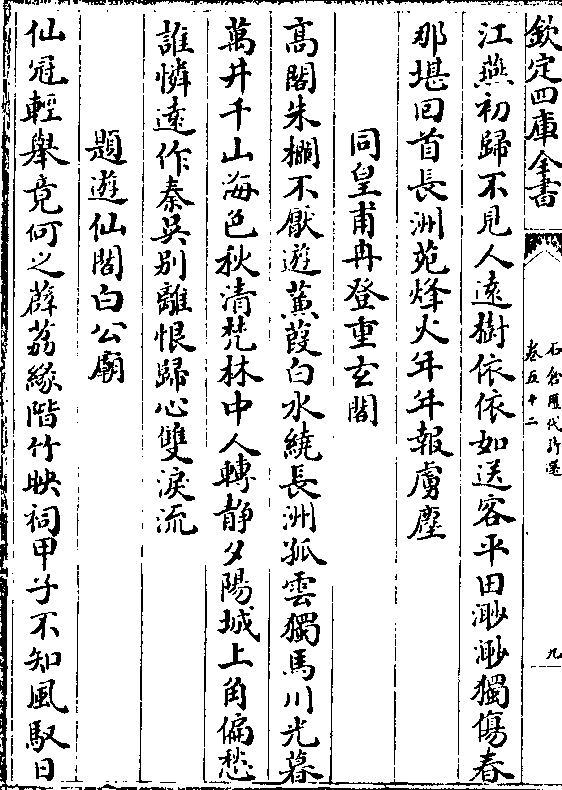 欽定四庫全書
石倉歷代詩選
卷五十二
九
江燕初歸不見人遠樹依依如送客平田渺渺獨傷春
那堪回首長洲苑烽火年年報虜塵
同皇甫冉登重玄閣
高閣朱欄不厭遊蒹葭白水繞長洲孤雲獨馬川光暮
萬井千山海色秋清梵林中人轉静夕陽城上角偏愁
誰憐遠作秦吳別離恨歸心雙淚流
題遊仙閣白公廟
仙冠輕舉竟何之薜荔緣階竹映祠甲子不知風馭日